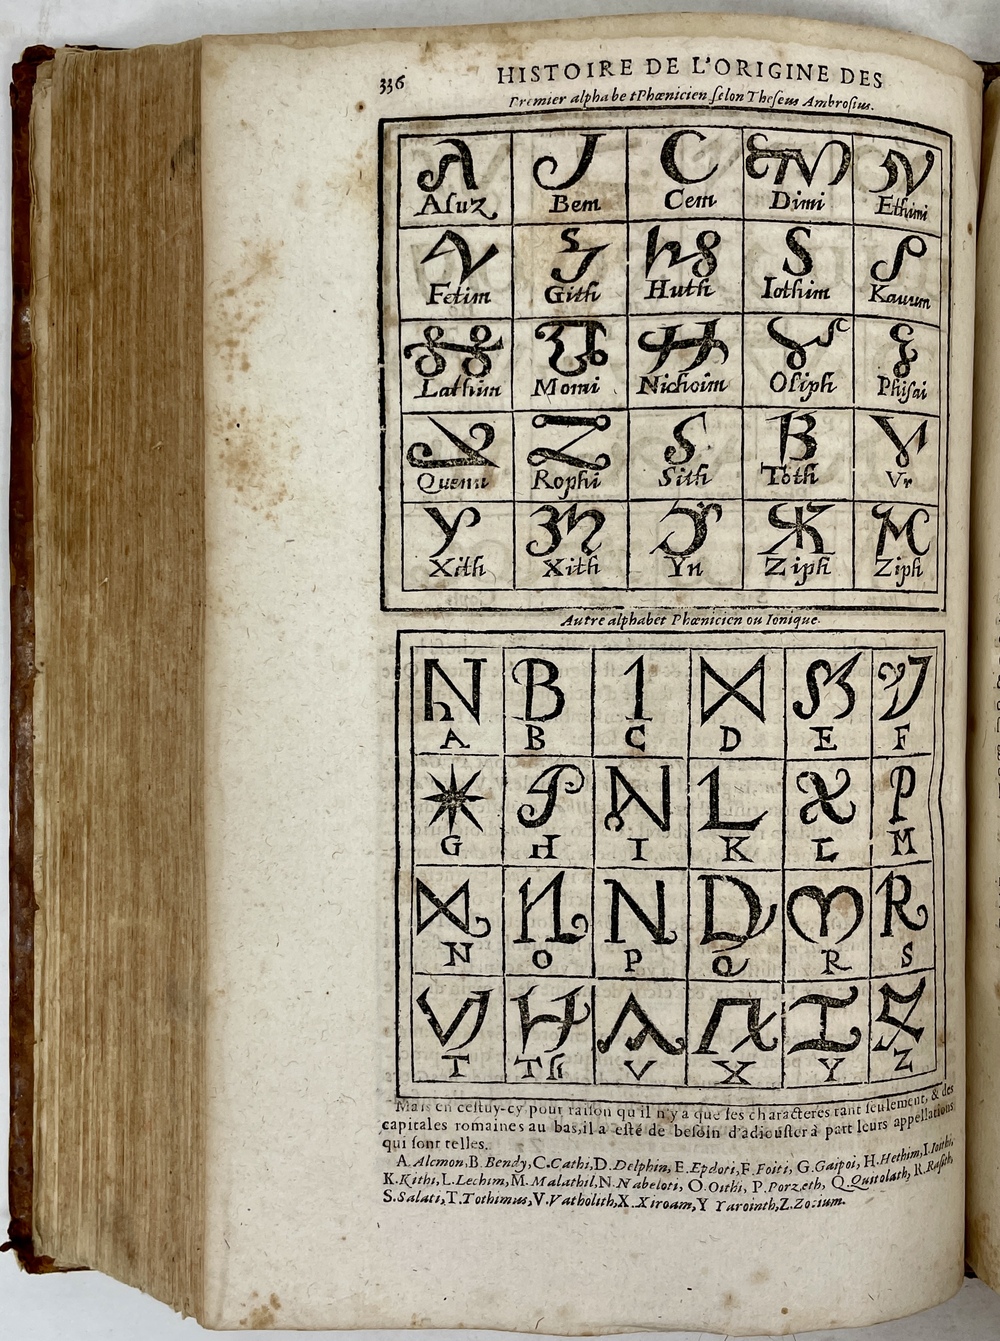 336 HISTOIRE DE L'ORIGINE DES
Premier alphabe tPhœnicien ſelon Theſeus Ambroſius.
Aſuz Bem Cem Dimi Ethimi
Fetim Gith Huth Iothim Kauum
Lathim Momi Nichoim Oſiph Phiſai
Quenu Rophi Sith Toth Vr
Xith Xith Yn Ziph Ziph
Autre alphabet Phœnicien ou Ionique.
A B C D E F
G H I K L M
N O P Q R S
T Th V X Y Z
Mais en ceſtuy-cy pour raiſon qu'il n'y a que ſes characteres tant ſeulement, & des
capitales romaines au bas, il a eſté de beſoin d'adiouſter à part leurs appellations
qui ſont telles.
A. Alcmon, B. Bendy, C. Cathi, D. Delphin, E. Epdori, F. Foiti, G. Gaipoi, H. Hethim, I. Ioithi,
K. Kithi, L. Lechim, M. Malathil, N. Nabeloti, O. Oithi, P. Porzeth, Q. Quitolath, R. Raſith,
S. Salati, T. Tothimus, V. Vatholith, X. Xiroam, Y Yarointh, Z. Zozium.